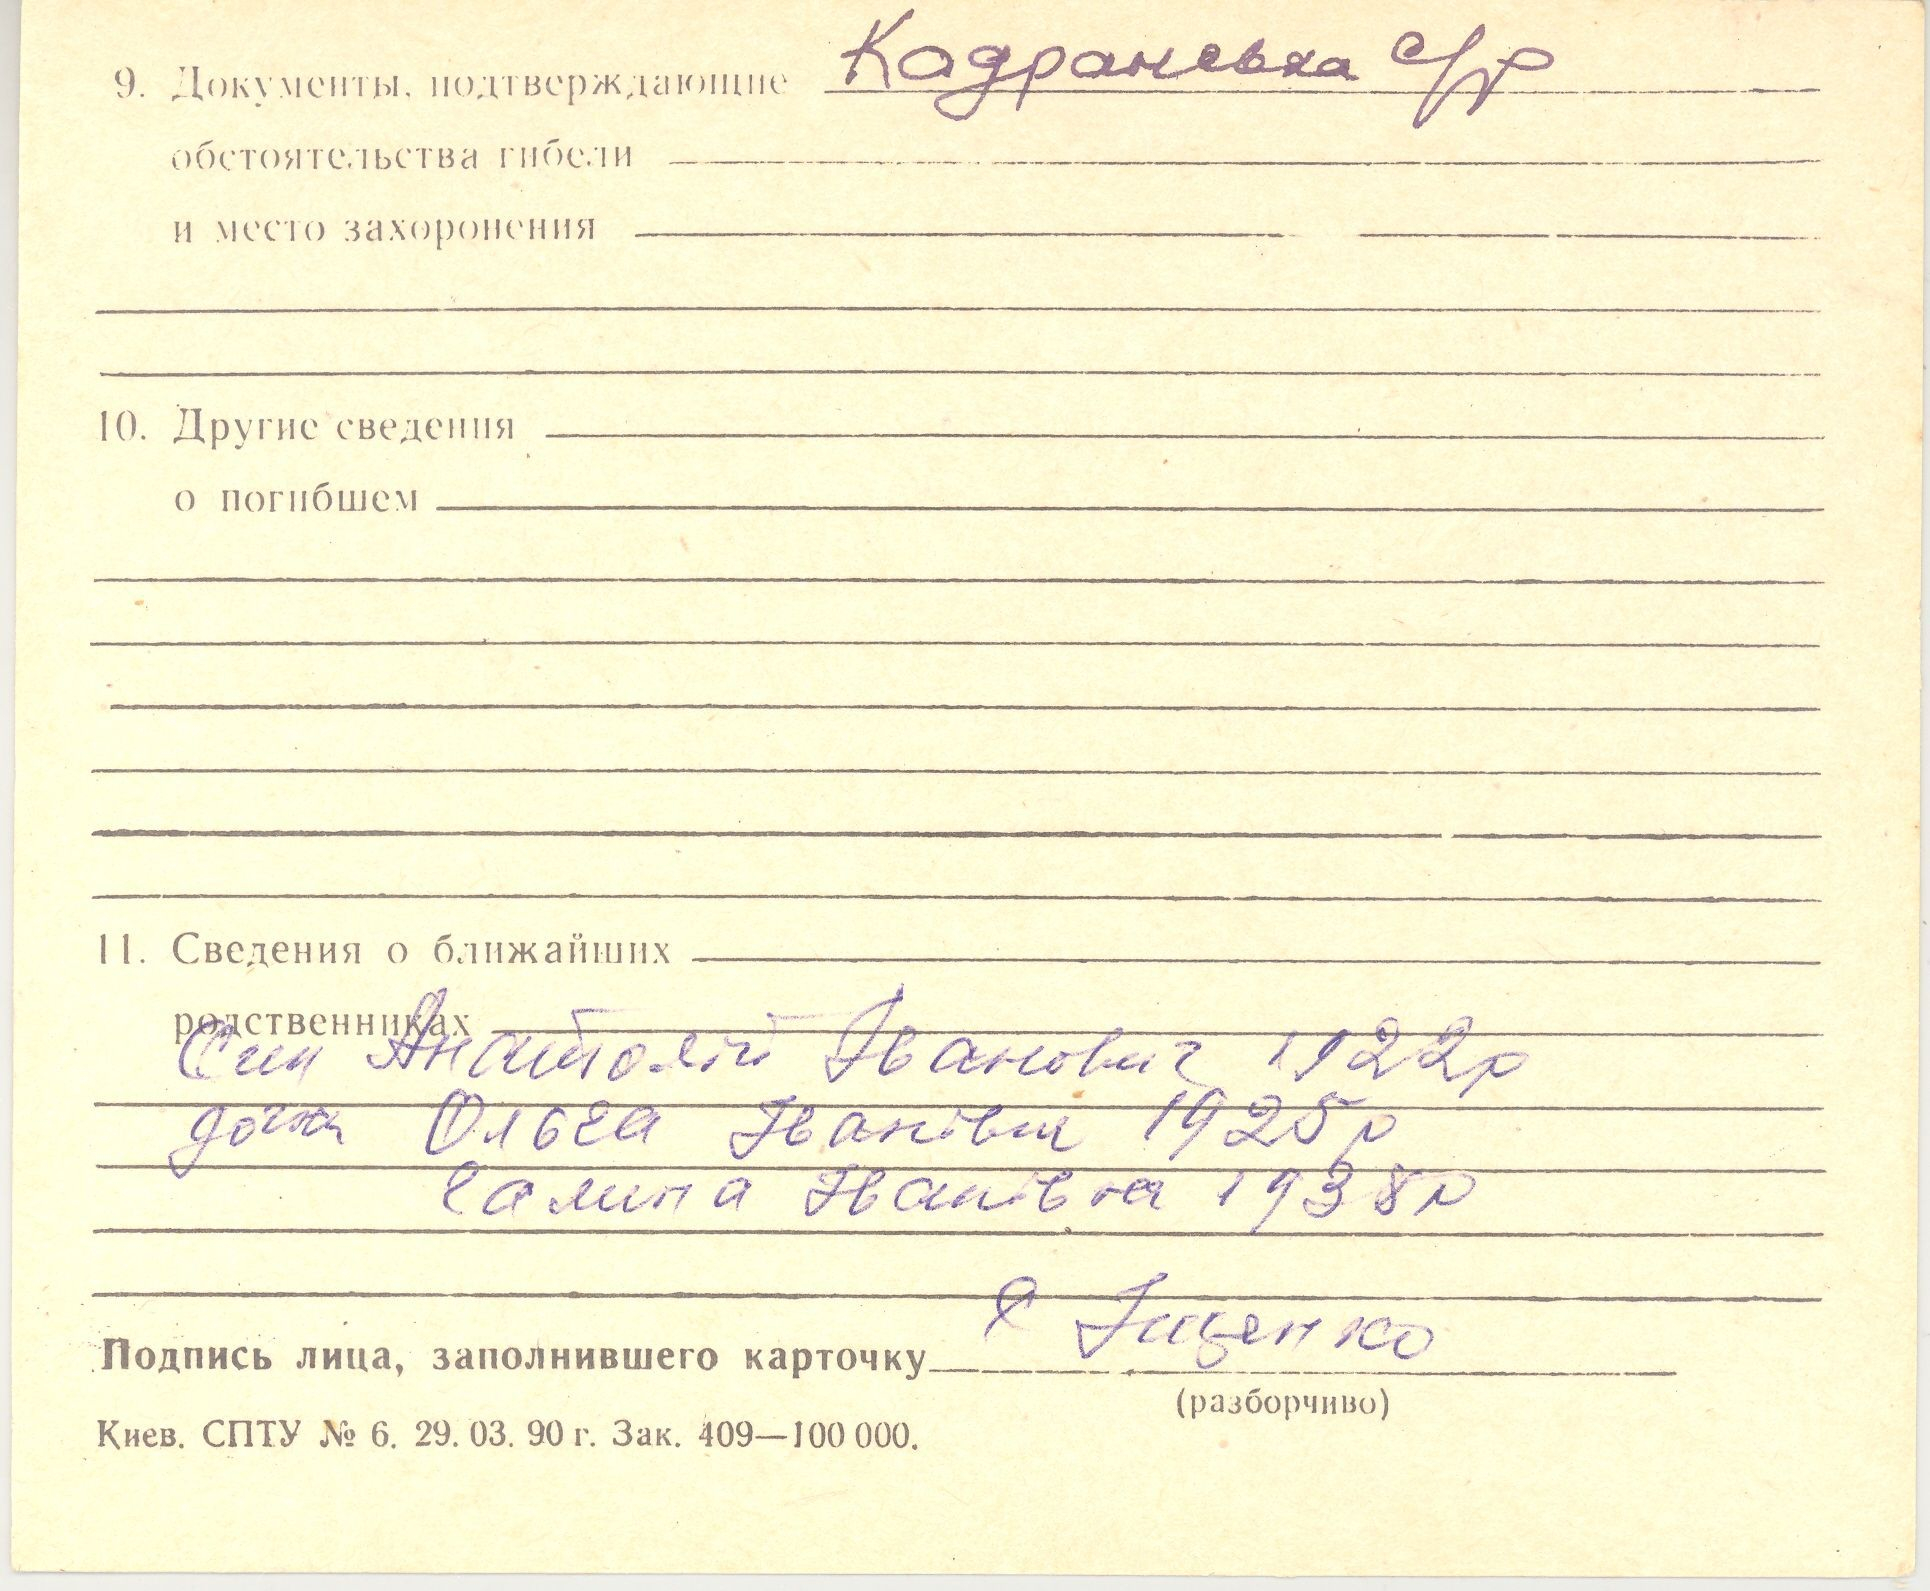 9. Документы, подтверждающие Кадранська с/р
обстоятельства гибели
и место захоронения
10. Другие сведения
о погибшем
11. Сведения о ближайших
родственниках
Син Анатолій Іванович 1922р
дочка Ольга Іванівна 1925р
Галина Іванівна 1938р
Іщенко
Подпись лица, заполнившего карточку
(разборчиво)
Киев. СПТУ № 6. 29. 03. 90 г. Зак. 409—100 000.